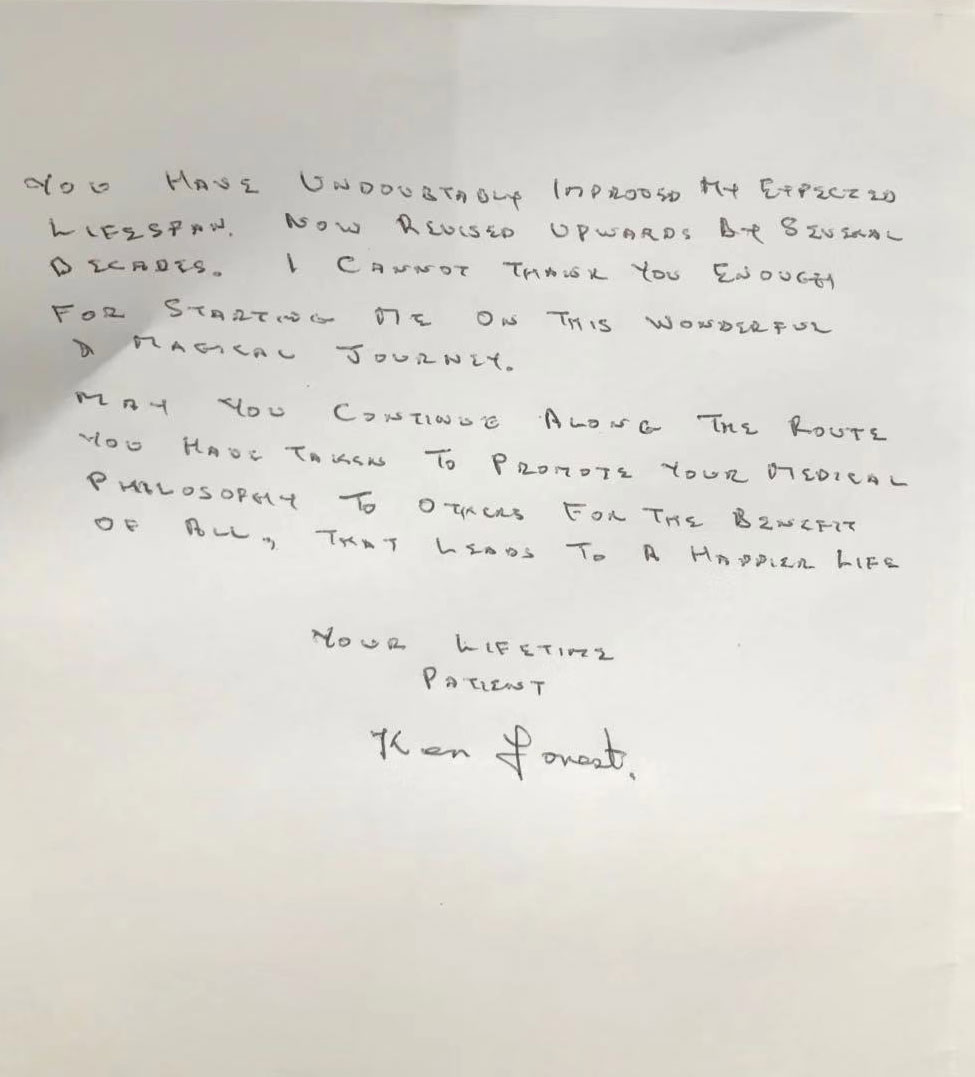 YOU HAVE UNDOUBTABLY IMPROVED MY EXPECTED
LIFESPAN. NOW REVISED UPWARDS BY SEVERAL
DECADES. I CANNOT THANK YOU ENOUGH
FOR STARTING ME ON THIS WONDERFUL
& MAGICAL JOURNEY.
MAY YOU CONTINUE ALONG THE ROUTE
YOU HAVE TAKEN TO PROMOTE YOUR MEDICAL
PHILOSOPHY TO OTHERS FOR THE BENEFIT
OF ALL, THAT LEADS TO A HAPPIER LIFE
YOUR LIFETIME
PATIENT
Ken Forest.